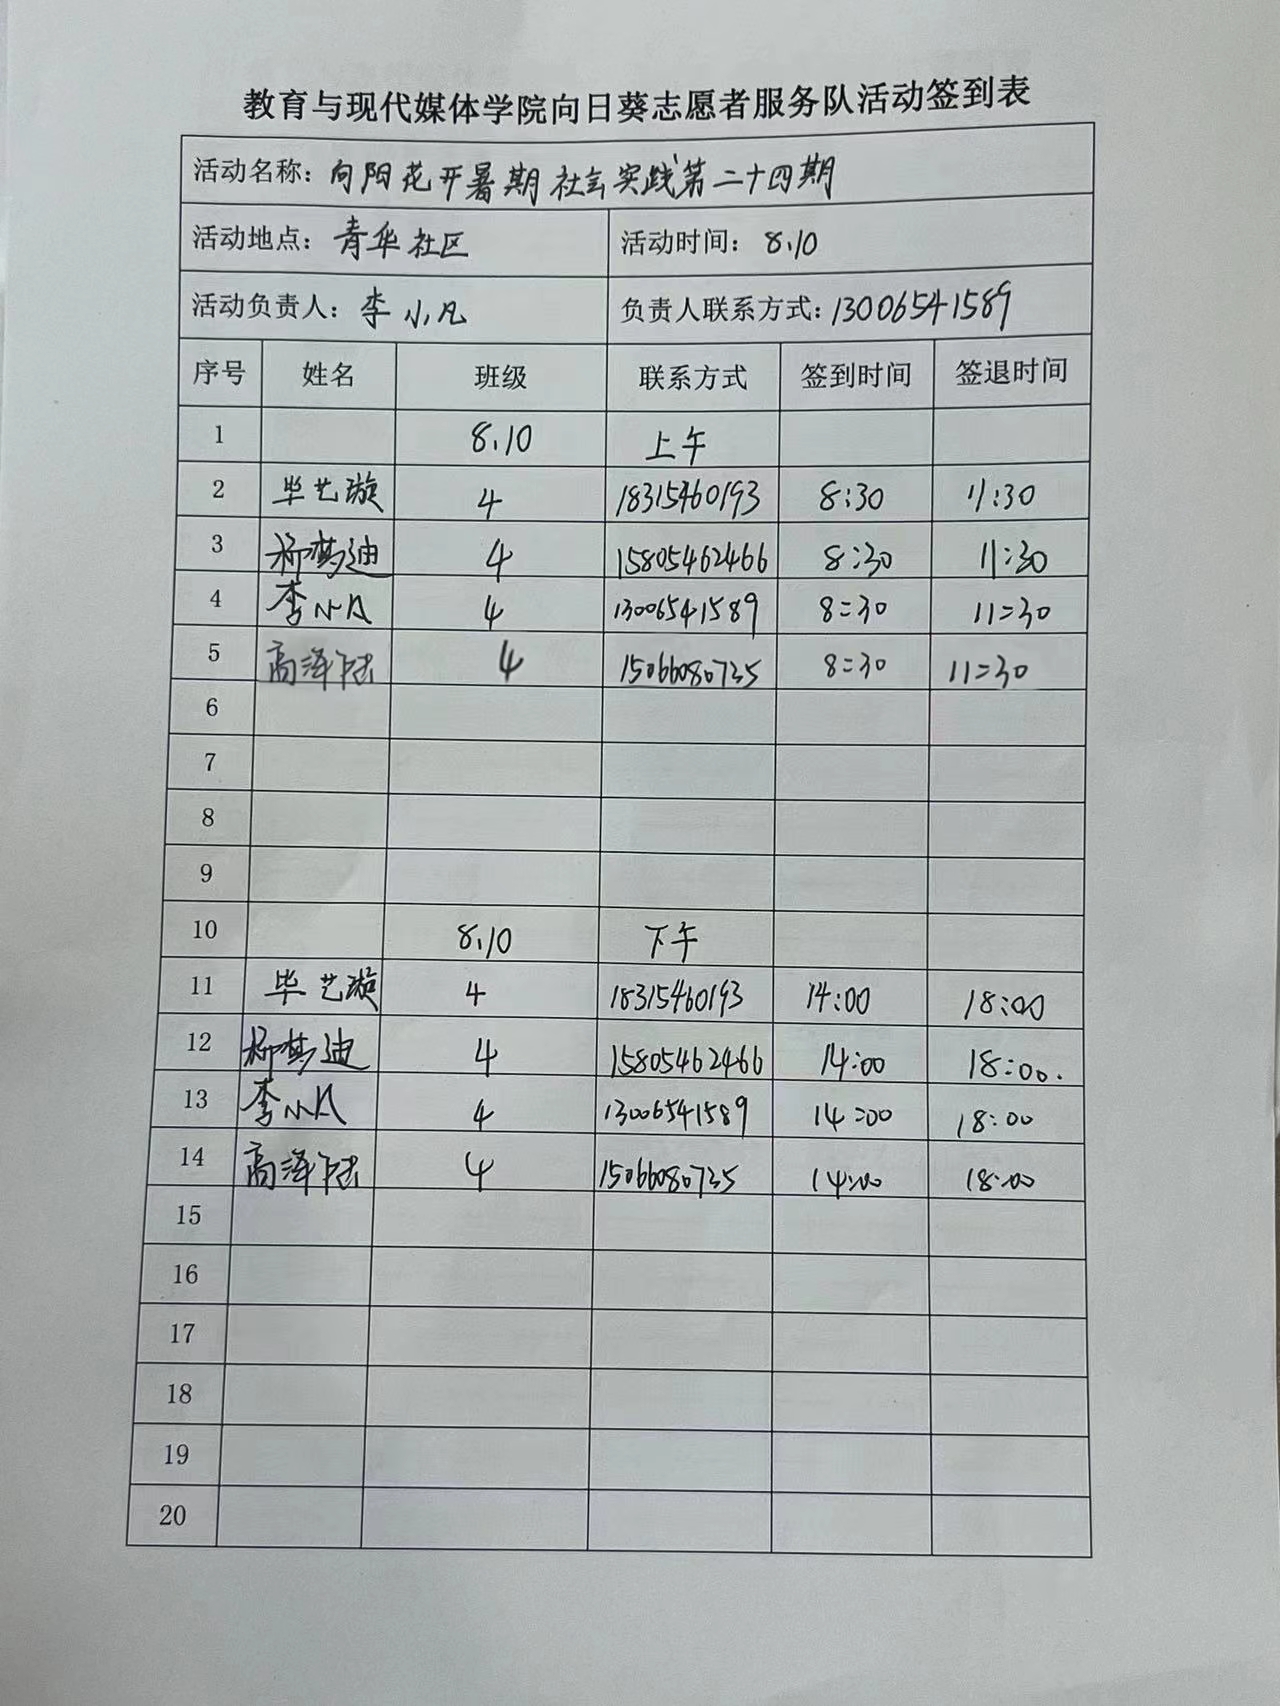 教育与现代媒体学院向日葵志愿者服务队活动签到表
活动名称：向阳花开暑期社会实践第二十四期
活动地点：青华社区 活动时间：8.10
活动负责人：李小凡 负责人联系方式：13006541589
序号 姓名 班级 联系方式 签到时间 签退时间
1 8.10 上午
2 毕艺璇 4 18315460193 8:30 11:30
3 柳梦迪 4 15805462466 8:30 11:30
4 李小凡 4 13006541589 8:30 11:30
5 高泽陆 4 15066080735 8:30 11:30
6
7
8
9
10 8.10 下午
11 毕艺璇 4 18315460193 14:00 18:00
12 柳梦迪 4 15805462466 14:00 18:00.
13 李小凡 4 13006541589 14:00 18:00
14 高泽陆 4 15066080735 14:00 18:00
15
16
17
18
19
20